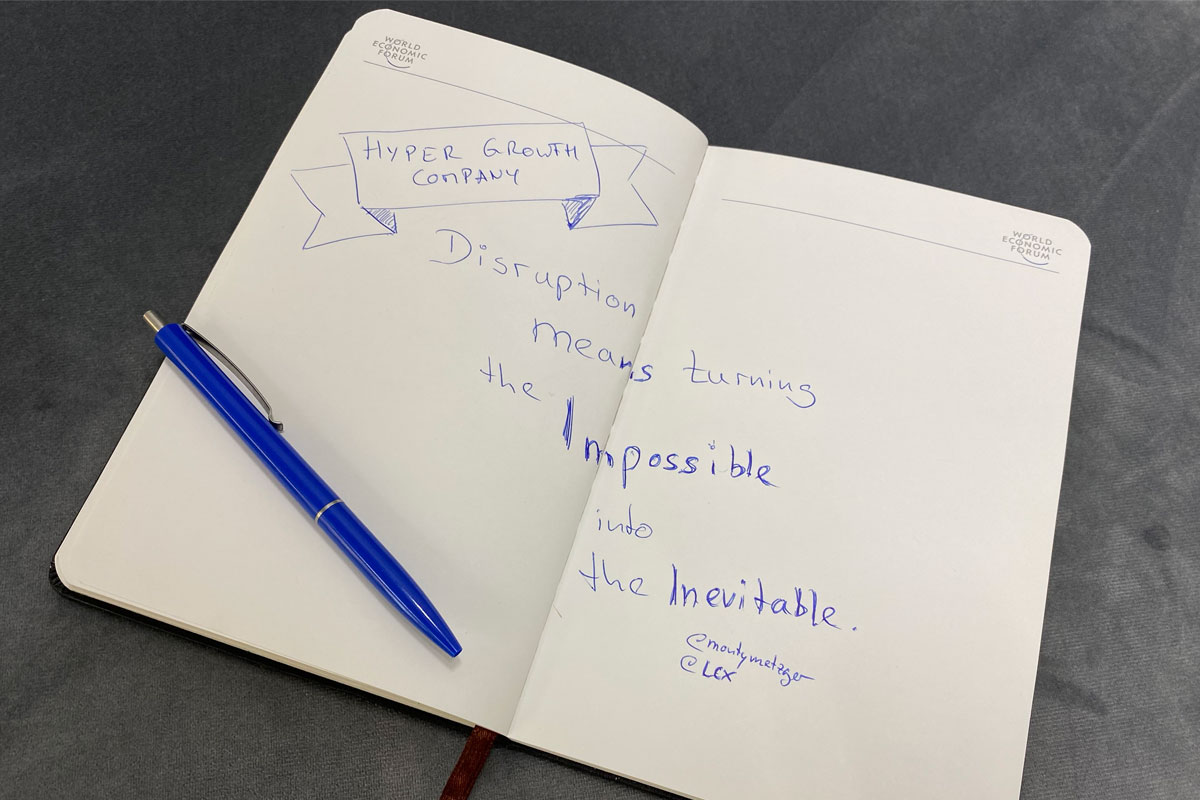 WORLD
ECONOMIC
FORUM
HYPER GROWTH
COMPANY
Disruption
means turning
the Impossible
into
the Inevitable.
@montymetzger
@LCX
WORLD
ECONOMIC
FORUM